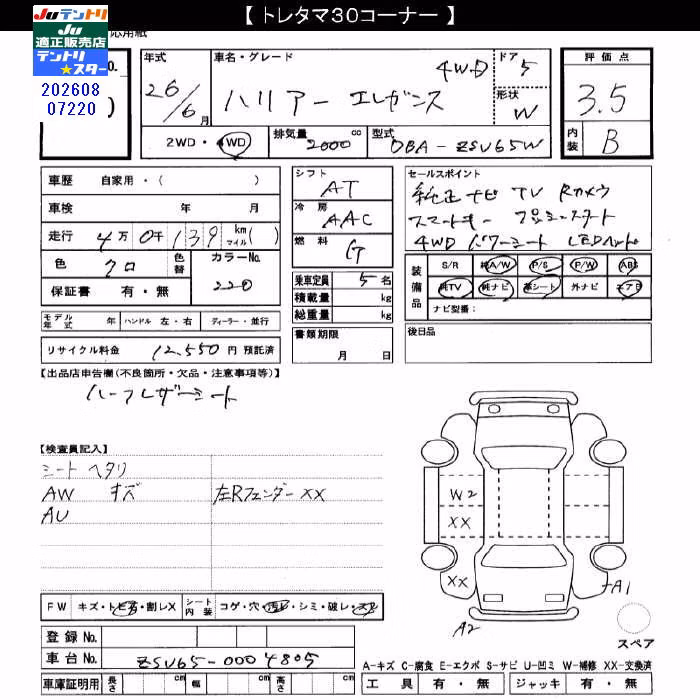 【 トレタマ30コーナー 】
Juテントリ
Ju
適正販売店
テントリ
★スター
応用紙
202608
07220
No.
)
年式
26/6月
車名・グレード
ハリアー エレガンス
4WD
ドア
5
形状
W
評価点
3.5
内装
B
2WD・4WD
排気量
2000 cc
型式
DBA-ZSU65W
車歴 自家用・( )
車検 年 月
走行 4万 0千 139 km マイル( )
色 クロ
色替
カラーNo.
220
保証書 有・無
シフト
AT
冷房
AAC
燃料
G
乗車定員 5名
積載量 kg
総重量 kg
書類期限
月 日
セールスポイント
純正ナビ TV Rカメラ
スマートキー プッシュスタート
4WD パワーシート LEDヘッド
装備品
S/R 純A/W P/S P/W ABS
純TV 純ナビ 革シート 外ナビ エアB
ナビ型番:
後日品
モデル年式 年 ハンドル 左・右 ディーラー・並行
リサイクル料金 12,550 円 預託済
【出品店申告欄(不良箇所・欠品・注意事項等)】
ハーフレザーシート
【検査員記入】
シート ヘタリ
AW キズ 左Rフェンダー XX
AU
W2
XX
XX
A1
A2
スペア
FW キズ・トビ石・割レX
シート内装 コゲ・穴・汚レ・シミ・破レ・スレ
登録 No.
車台 No. ZSU65-0004805
車庫証明用 長さ cm 幅 cm 高さ cm
A-キズ C-腐食 E-エクボ S-サビ U-凹ミ W-補修 XX-交換済
工具 有・無 ジャッキ 有・無